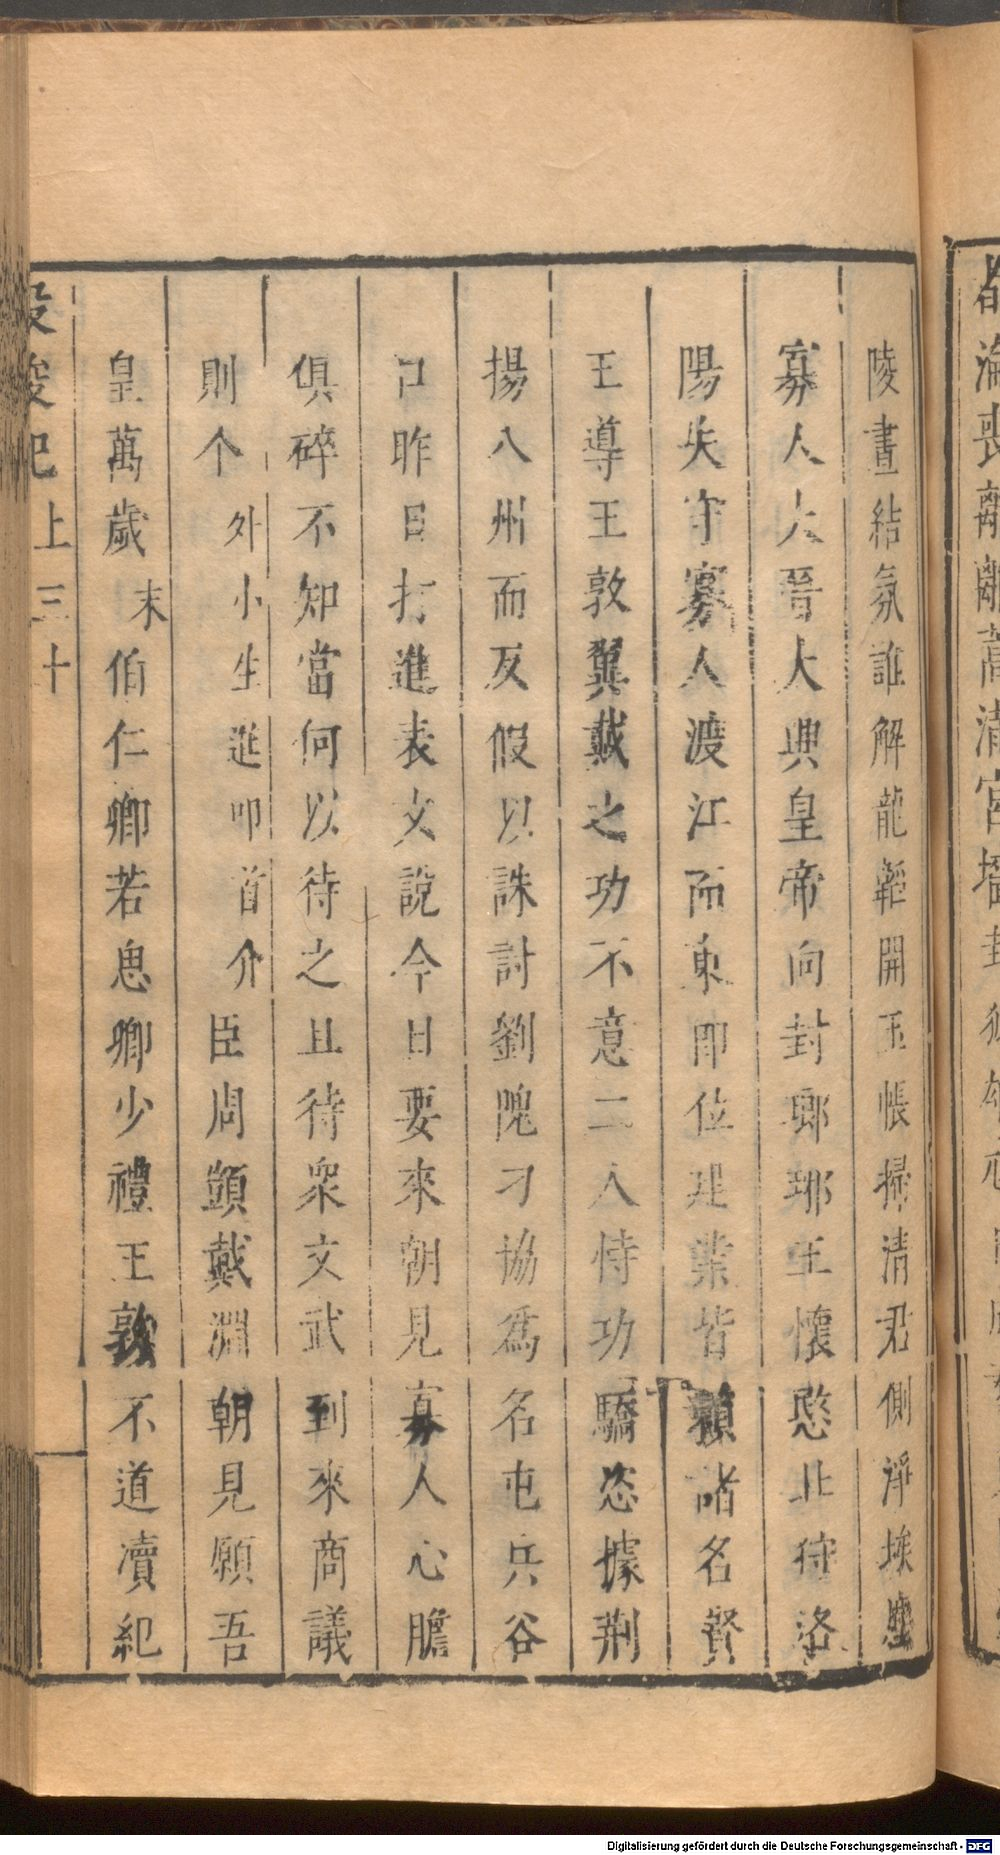 陵晝結氛誰解龍韜開玉帳掃清君側淨埃塵
寡人大晉大興皇帝向封瑯琊王懷愍北狩洛
陽失守寡人渡江而東即位建業皆賴諸名賢
王導王敦翼戴之功不意二人恃功驕恣據荆
揚八州而反假以誅討劉隗刁協爲名屯兵谷
口昨日打進表文說今日要來朝見寡人心膽
俱碎不知當何以待之且待衆文武到來商議
則个 外小生進叩首介 臣周顗戴淵朝見願吾
皇萬歲 末 伯仁卿若思卿少禮王敦不道瀆紀
投梭記上 三十
都淪喪離離蒿滿宮墻